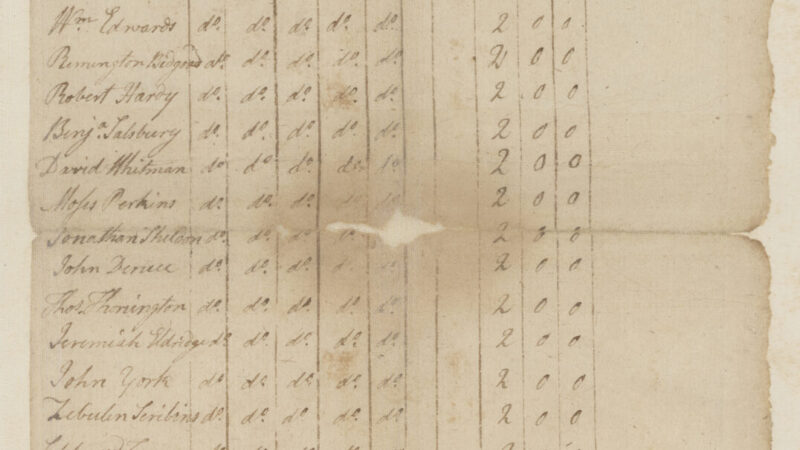 Wm. Edwards do. do. do. do. do. 2 0 0
Remington do. do. do. do. do. 2 0 0
Robert Hardy do. do. do. do. do. 2 0 0
Benja. Salsbury do. do. do. do. do. 2 0 0
David Whitman do. do. do. do. do. 2 0 0
Moses Perkins do. do. do. do. do. 2 0 0
Jonathan Sheldon do. do. do. do. 2 0 0
John do. do. do. do. do. 2 0 0
Thos. do. do. do. do. do. 2 0 0
Jeremiah Eldridge do. do. do. do. do. 2 0 0
John York do. do. do. do. do. 2 0 0
Zebulen Scribins do. do. do. do. do. 2 0 0